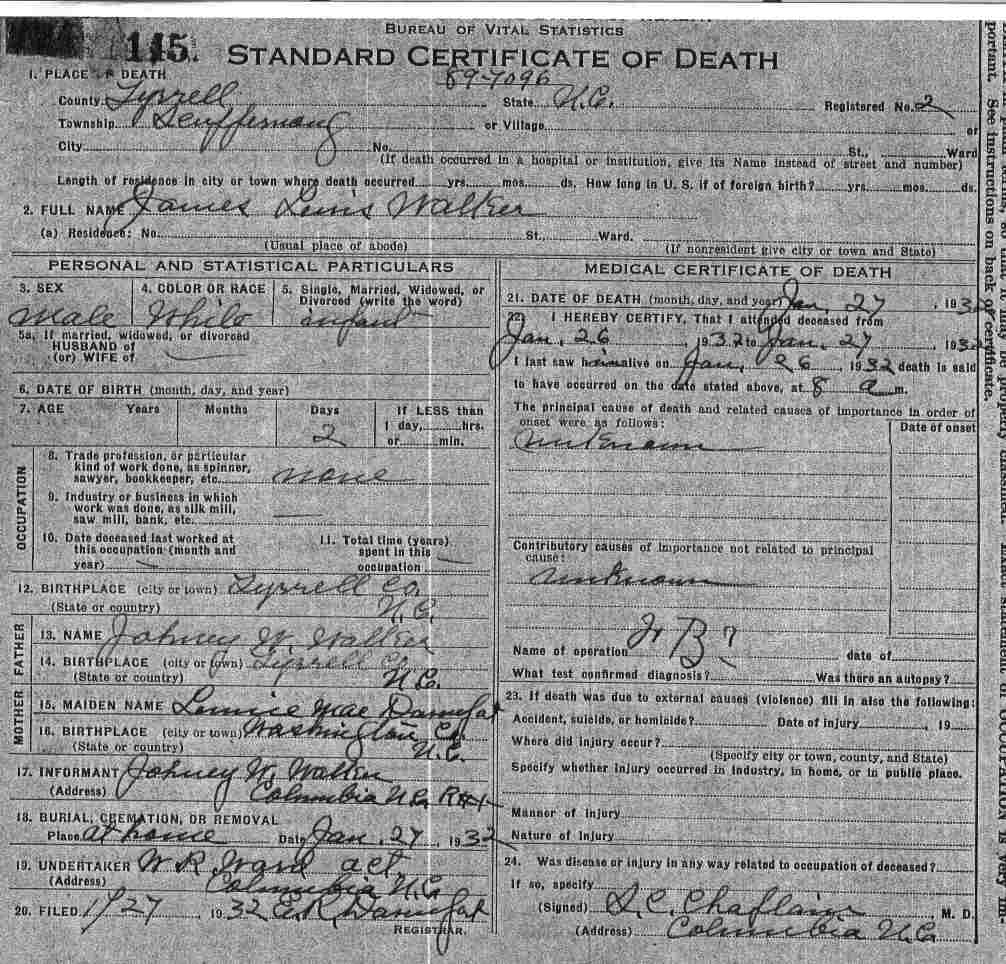 BUREAU OF VITAL STATISTICS
115.
STANDARD CERTIFICATE OF DEATH
89-7096
1. PLACE OF DEATH
County Tyrrell State N.C. Registered No. 2
Township Scuffernong or Village or
City No. St., Ward
(If death occurred in a hospital or institution, give its Name instead of street and number)
Length of residence in city or town where death occurred yrs. mos. ds. How long in U. S. if of foreign birth? yrs. mos. ds.
2. FULL NAME James Lewis Walker
(a) Residence: No. St., Ward.
(Usual place of abode) (If nonresident give city or town and State)
PERSONAL AND STATISTICAL PARTICULARS
3. SEX 4. COLOR OR RACE 5. Single, Married, Widowed, or
Divorced (write the word)
Male White infant
5a. If married, widowed, or divorced
HUSBAND of
(or) WIFE of
6. DATE OF BIRTH (month, day, and year)
7. AGE Years Months Days If LESS than
2 1 day, hrs.
or min.
OCCUPATION
8. Trade profession, or particular
kind of work done, as spinner,
sawyer, bookkeeper, etc. none
9. Industry or business in which
work was done, as silk mill,
saw mill, bank, etc.
10. Date deceased last worked at
this occupation (month and
year)
11. Total time (years)
spent in this
occupation
12. BIRTHPLACE (city or town) Tyrrell Co.
(State or country) N.C.
FATHER
13. NAME Johney W. Walker
14. BIRTHPLACE (city or town) Tyrrell Co.
(State or country) N.C.
MOTHER
15. MAIDEN NAME Lennie Mae
16. BIRTHPLACE (city or town) Washington Co.
(State or country) N.C.
17. INFORMANT Johney W. Walker
(Address) Columbia N.C.
18. BURIAL, CREMATION, OR REMOVAL
Place at home Date Jan. 27, 1932
19. UNDERTAKER W. R. Ward act.
(Address) Columbia N.C.
20. FILED 1/27 1932 E.R.
REGISTRAR.
MEDICAL CERTIFICATE OF DEATH
21. DATE OF DEATH (month, day, and year) Jan. 27, 1932
22. I HEREBY CERTIFY, That I attended deceased from
Jan. 26, 1932 to Jan. 27, 1932
I last saw him alive on Jan. 26, 1932 death is said
to have occurred on the date stated above, at 8 a m.
The principal cause of death and related causes of importance in order of
onset were as follows: Date of onset
unknown
Contributory causes of importance not related to principal
cause:
unknown
Name of operation date of
What test confirmed diagnosis? Was there an autopsy?
23. If death was due to external causes (violence) fill in also the following:
Accident, suicide, or homicide? Date of injury 19
Where did injury occur?
(Specify city or town, county, and State)
Specify whether injury occurred in industry, in home, or in public place.
Manner of injury
Nature of injury
24. Was disease or injury in any way related to occupation of deceased?
If so, specify
(Signed) S.C. Chaplain, M. D.
(Address) Columbia N.C.
portant. See instructions on back of certificate.